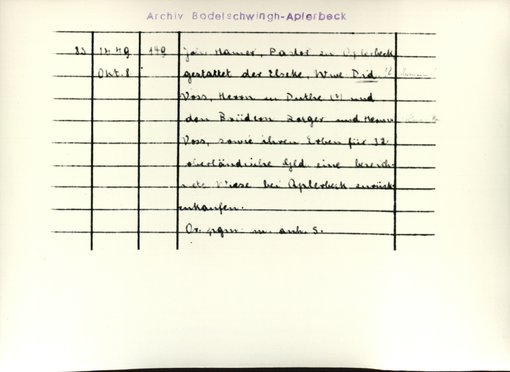 Archiv Bodelschwingh-Aplerbeck
83 1449 149 Joh. Hamer, Pastor zu Aplerbeck
Okt. 8 gestattet der Elseke, Wwe Did.
Voss, Herrn zu (?) und
den Brüdern Rotger und
Voss, sowie ihren Erben für 32
oberländische Gld. eine bezeich-
nete Wiese bei Aplerbeck zurück-
zukaufen.
Or. pgm. m. anh. S.